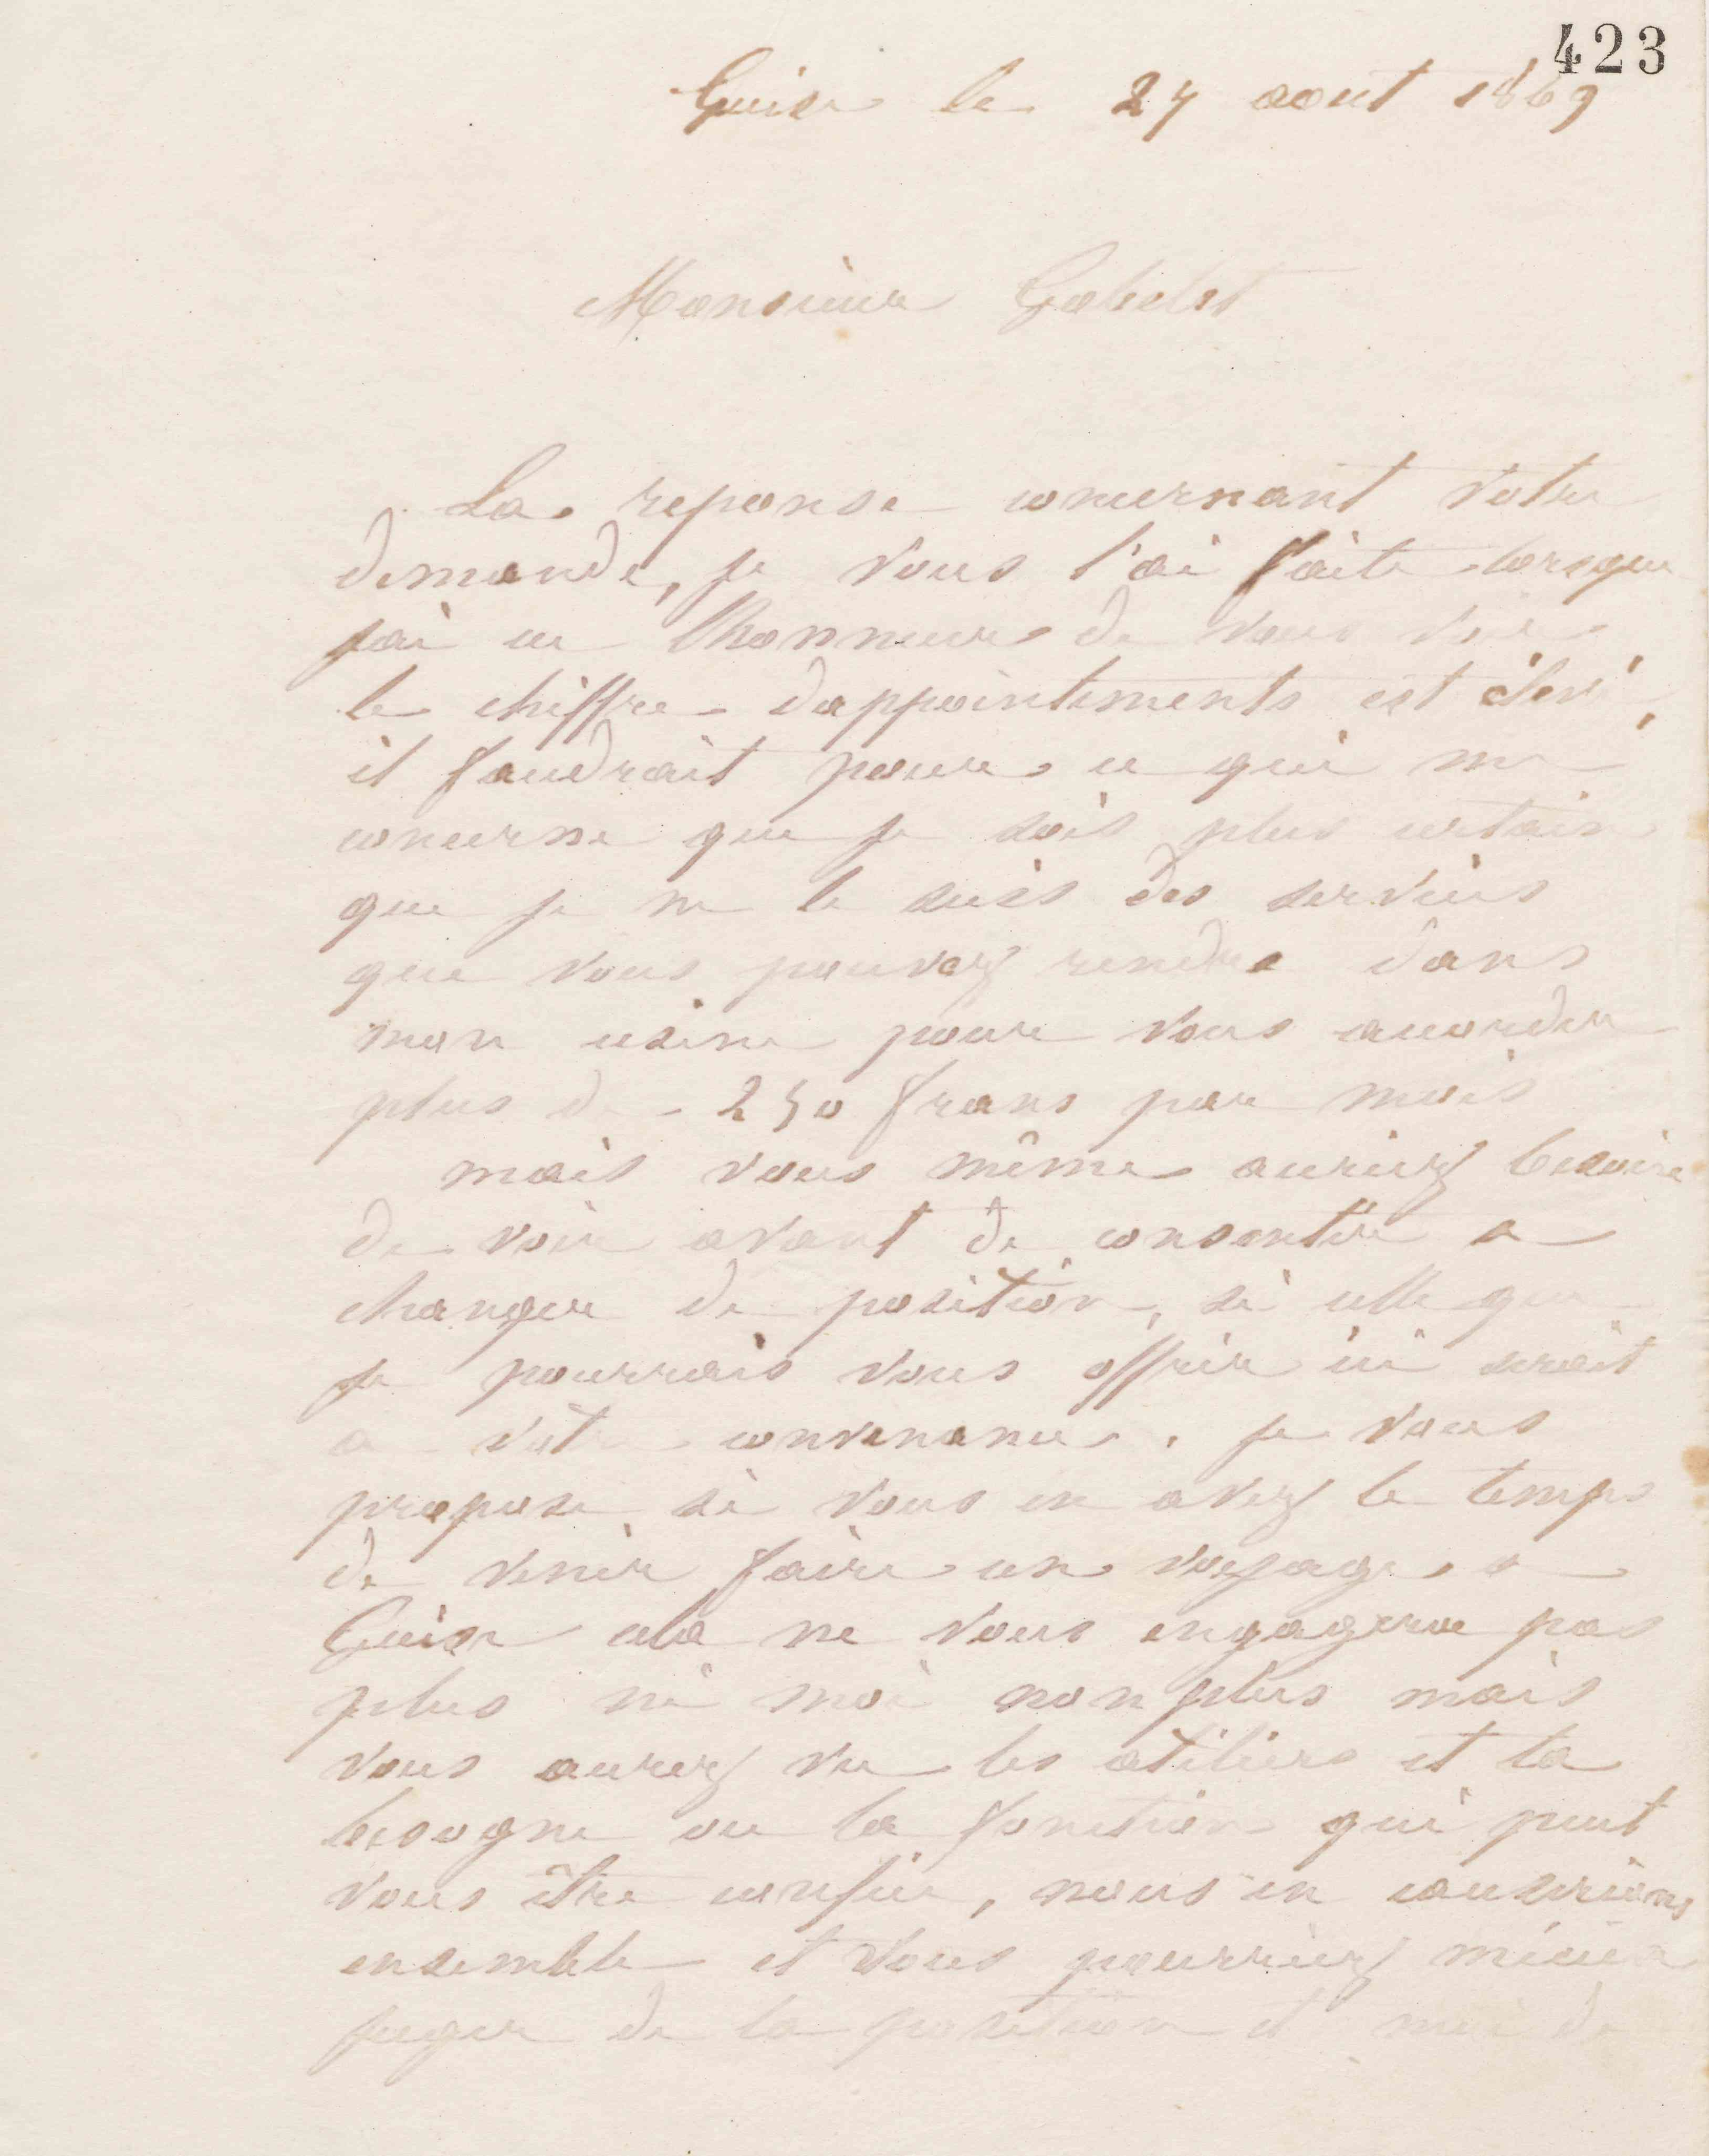 423
Guise le 27 aout 1869
Monsieur Gobelet
La reponse concernant votre
demande, je vous l'ai faite lorsque
jai eu lhonneur de vous voir
le chiffre dappointements est élevé,
il faudrait pour ce qui me
concerne que je sois plus certain
que je ne le suis des services
que vous pouvez rendre dans
mon usine pour vous accorder
plus de 250 francs par mois
mais vous même auriez besoin
de voir avant de consentir a
changer de position, si celle que
je pourrais vous offrir ici serait
a votre convenance. je vous
propose si vous en avez le temps
de venir faire un voyage a
Guise cela ne vous engagera pas
plus ni moi non plus mais
vous aurez vu les ateliers et la
besogne ou la fonction qui peut
vous être confiée, nous en causerions
ensemble et vous pourriez mieux
juger de la position et moi de